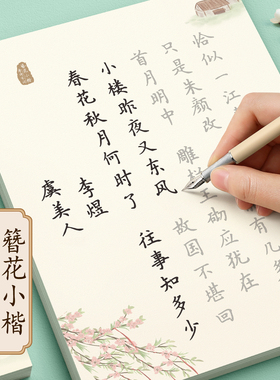 虞美人
李煜
春花秋月何时了
往事知多少
小楼昨夜又东风
故国不堪回
首月明中
雕 砌应犹在
只是朱颜改
有几
恰似一江
簪花小楷